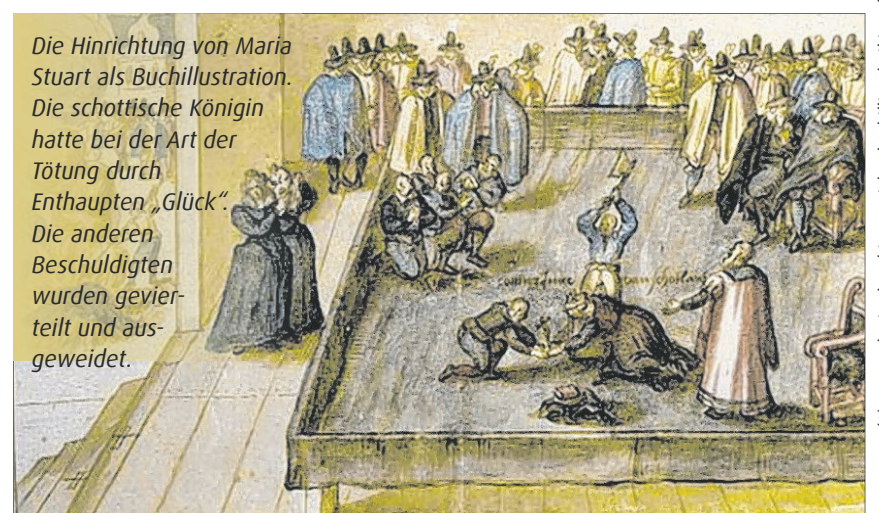 Die Hinrichtung von Maria
Stuart als Buchillustration.
Die schottische Königin
hatte bei der Art der
Tötung durch
Enthaupten „Glück“.
Die anderen
Beschuldigten
wurden gevier-
teilt und aus-
geweidet.